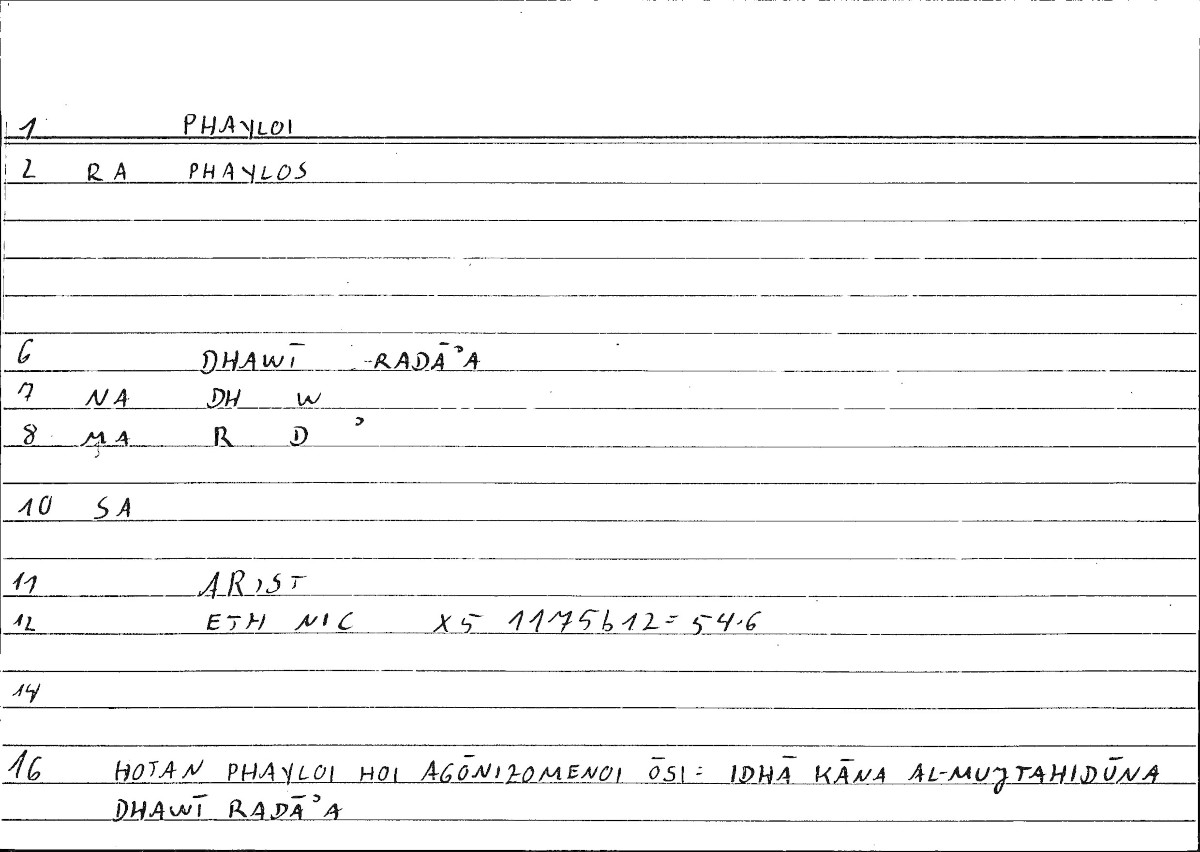 1 PHAYLOI
2 RA PHAYLOS
6 DHAWĪ -RADĀʾA
7 NA DH W
8 MA R D ʾ
10 SA
11 ARIST
12 ETH NIC X5 1175b12=54.6
14
16 HOTAN PHAYLOI HOI AGŌNIZOMENOI ŌSI = IDHĀ KĀNA AL-MUJTAHIDŪNA
DHAWĪ RADĀʾA